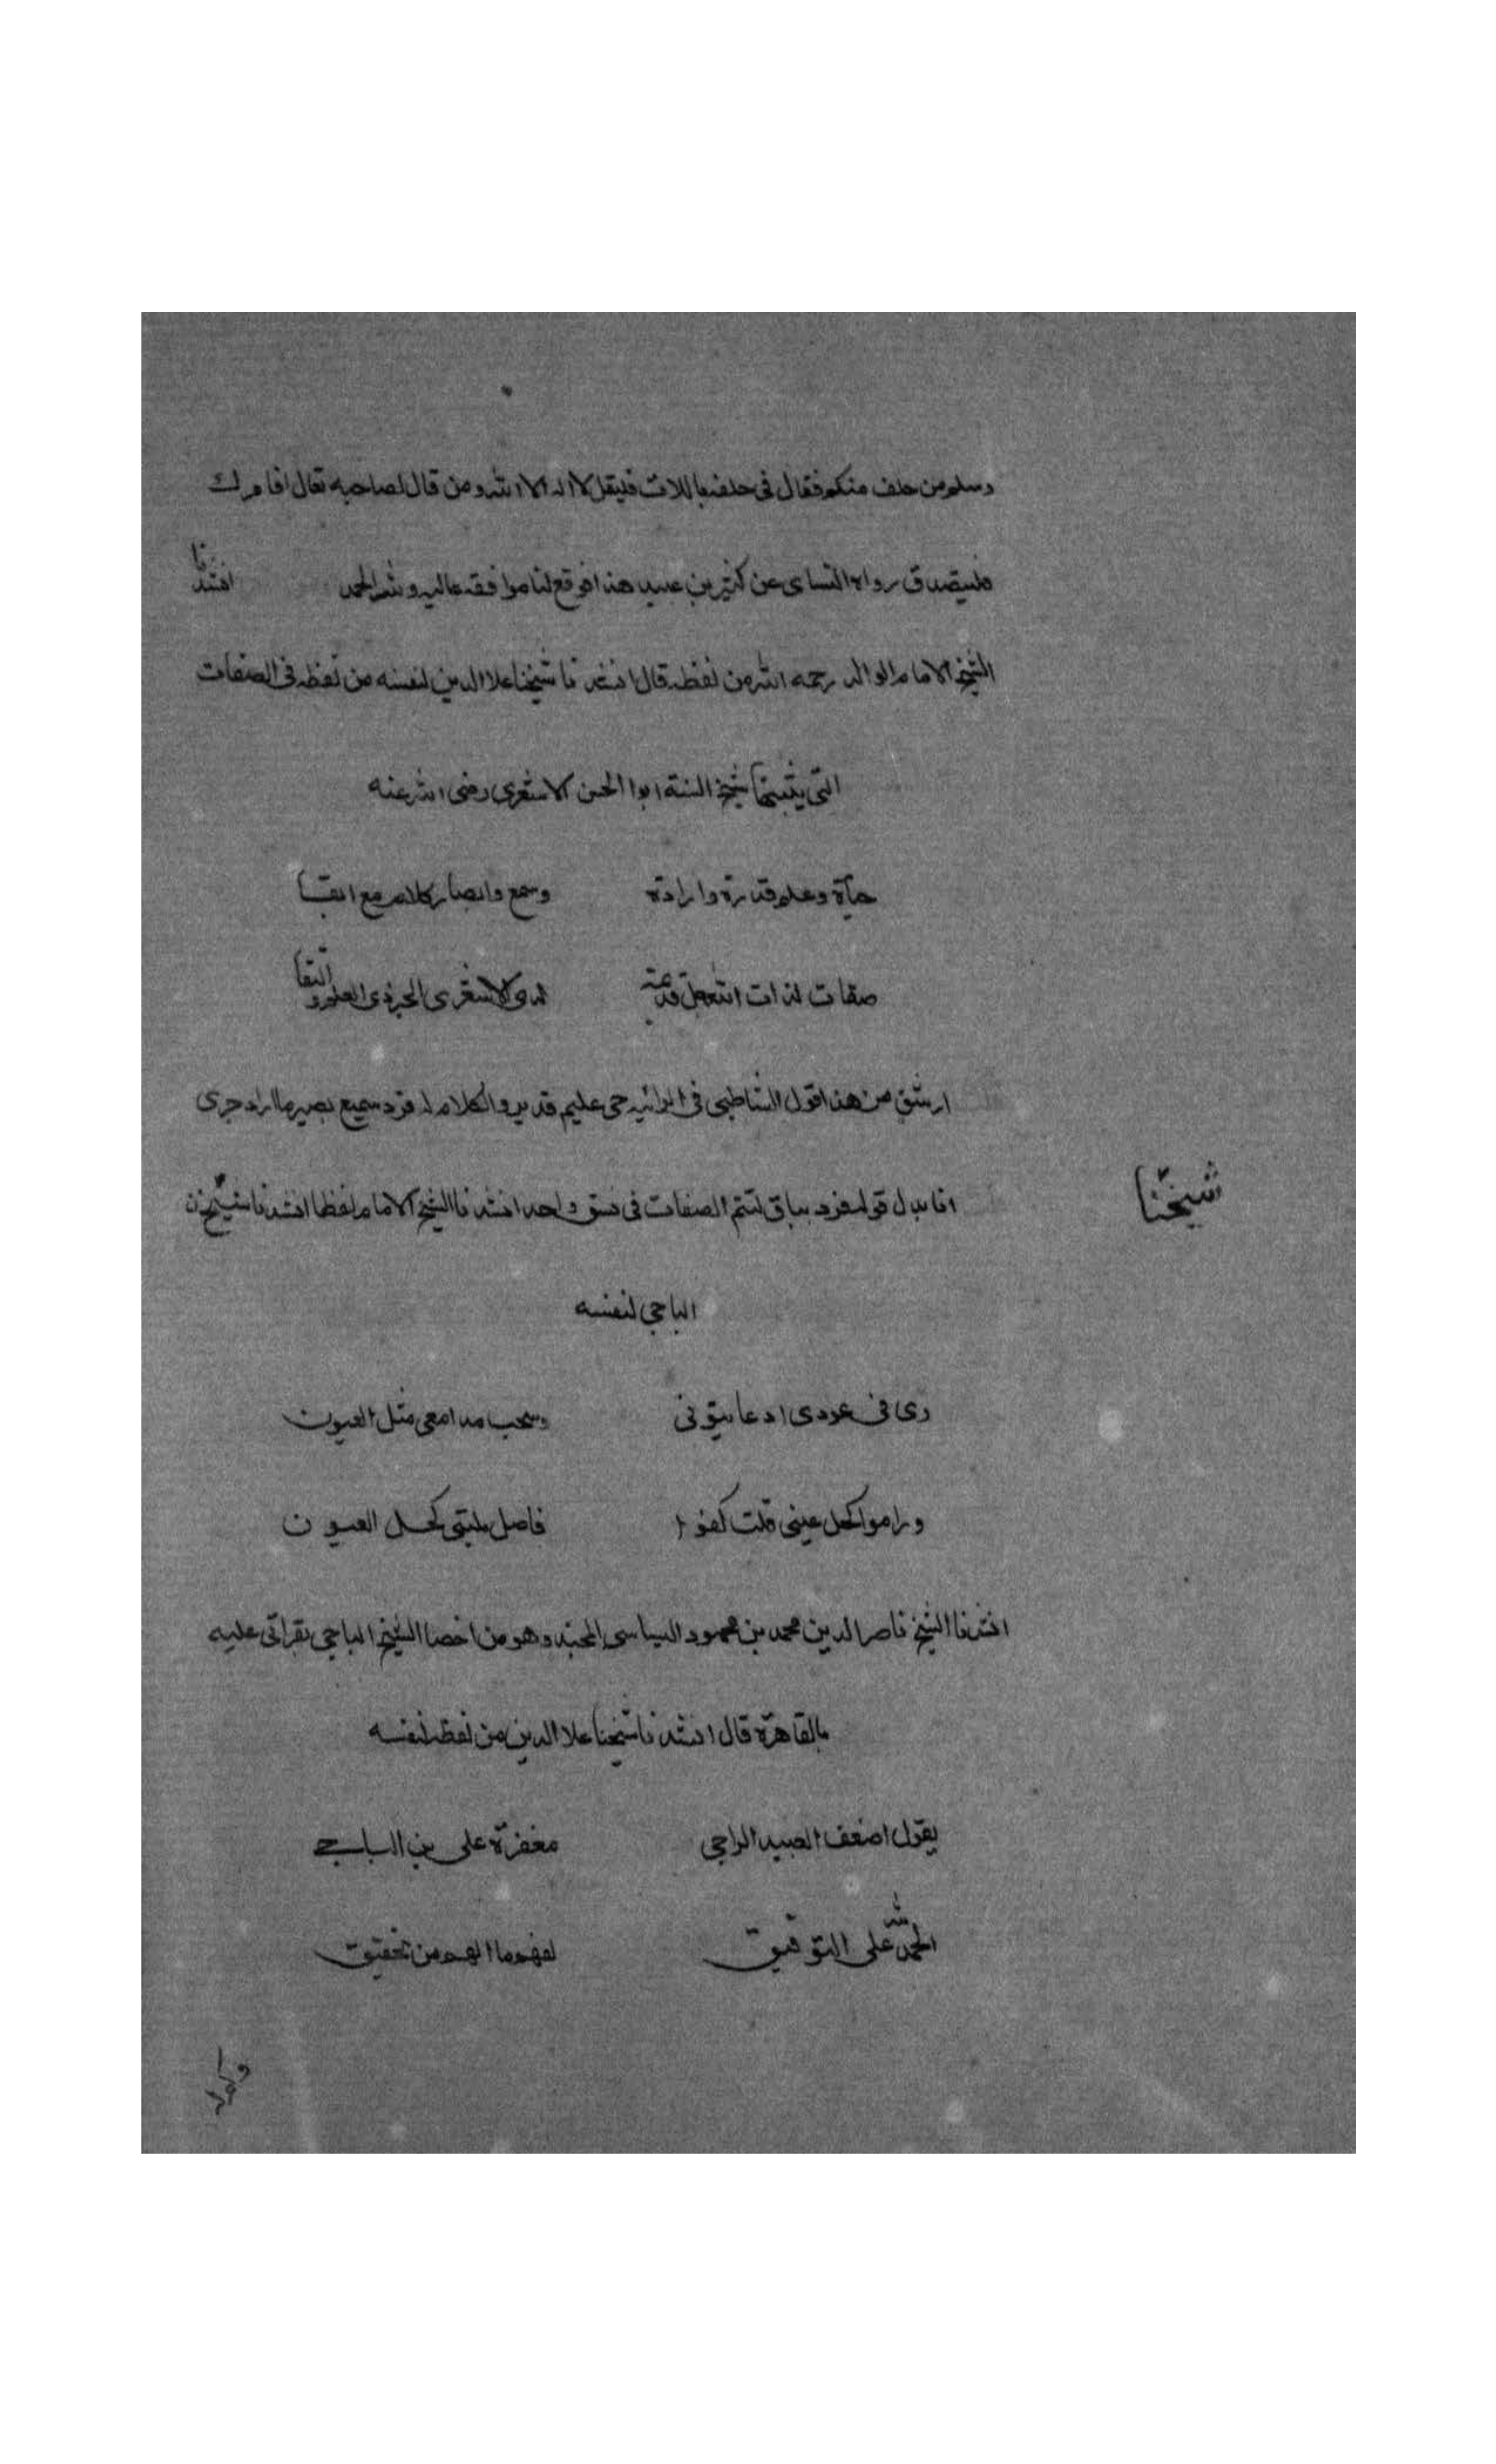 وسلم من حلف منكم فقال في حلفه باللات فليقل لا اله الا الله ومن قال لصاحبه تعال اقامرك
فليتصدق رواه النساى عن كثير بن عبيد هذا فوقع لنا موافقه عاليه ولله الحمد انشدنا
الشيخ الامام الوالد رحمه الله من لفظه قال انشدنا شيخنا علا الدين لنفسه من لفظه فى الصفات
التى يثبتها شيخ السنة ابوا الحسن الاشعرى رضى الله عنه
حياة وعلم قدرة وارادة وسمع وابصار كلام مع البقا
صفات لذات الله جل قديمة لدى الاشعرى الحبر ذى العلم والتقا
ارشق من هذا قول الشاطبى فى الرائيه حى عليم قدير والكلام له فرد سميع بصير ما اراد جرى
انا ابدل قوله فرد بباق لتتم الصفات فى نسق واحد انشدنا الشيخ الامام لفظا انشدنا شيخنا
شيخنا
الباجى لنفسه
وسحب مدامعى مثل العيون
وراموا كحل عينى قلت كفوا فاصل بليتى كحل العيون
انشدنا الشيخ ناصر الدين محمد بن محمود البساسى المجند وهو من اخصا الشيخ الباجى بقراتى عليه
بالقاهرة قال انشدنا شيخنا علا الدين من لفظه لنفسه
يقول اضعف العبيد الراجى مغفرة على بن الباجى
الحمد لله على التوفيق لفهم ما الهم من تحقيق